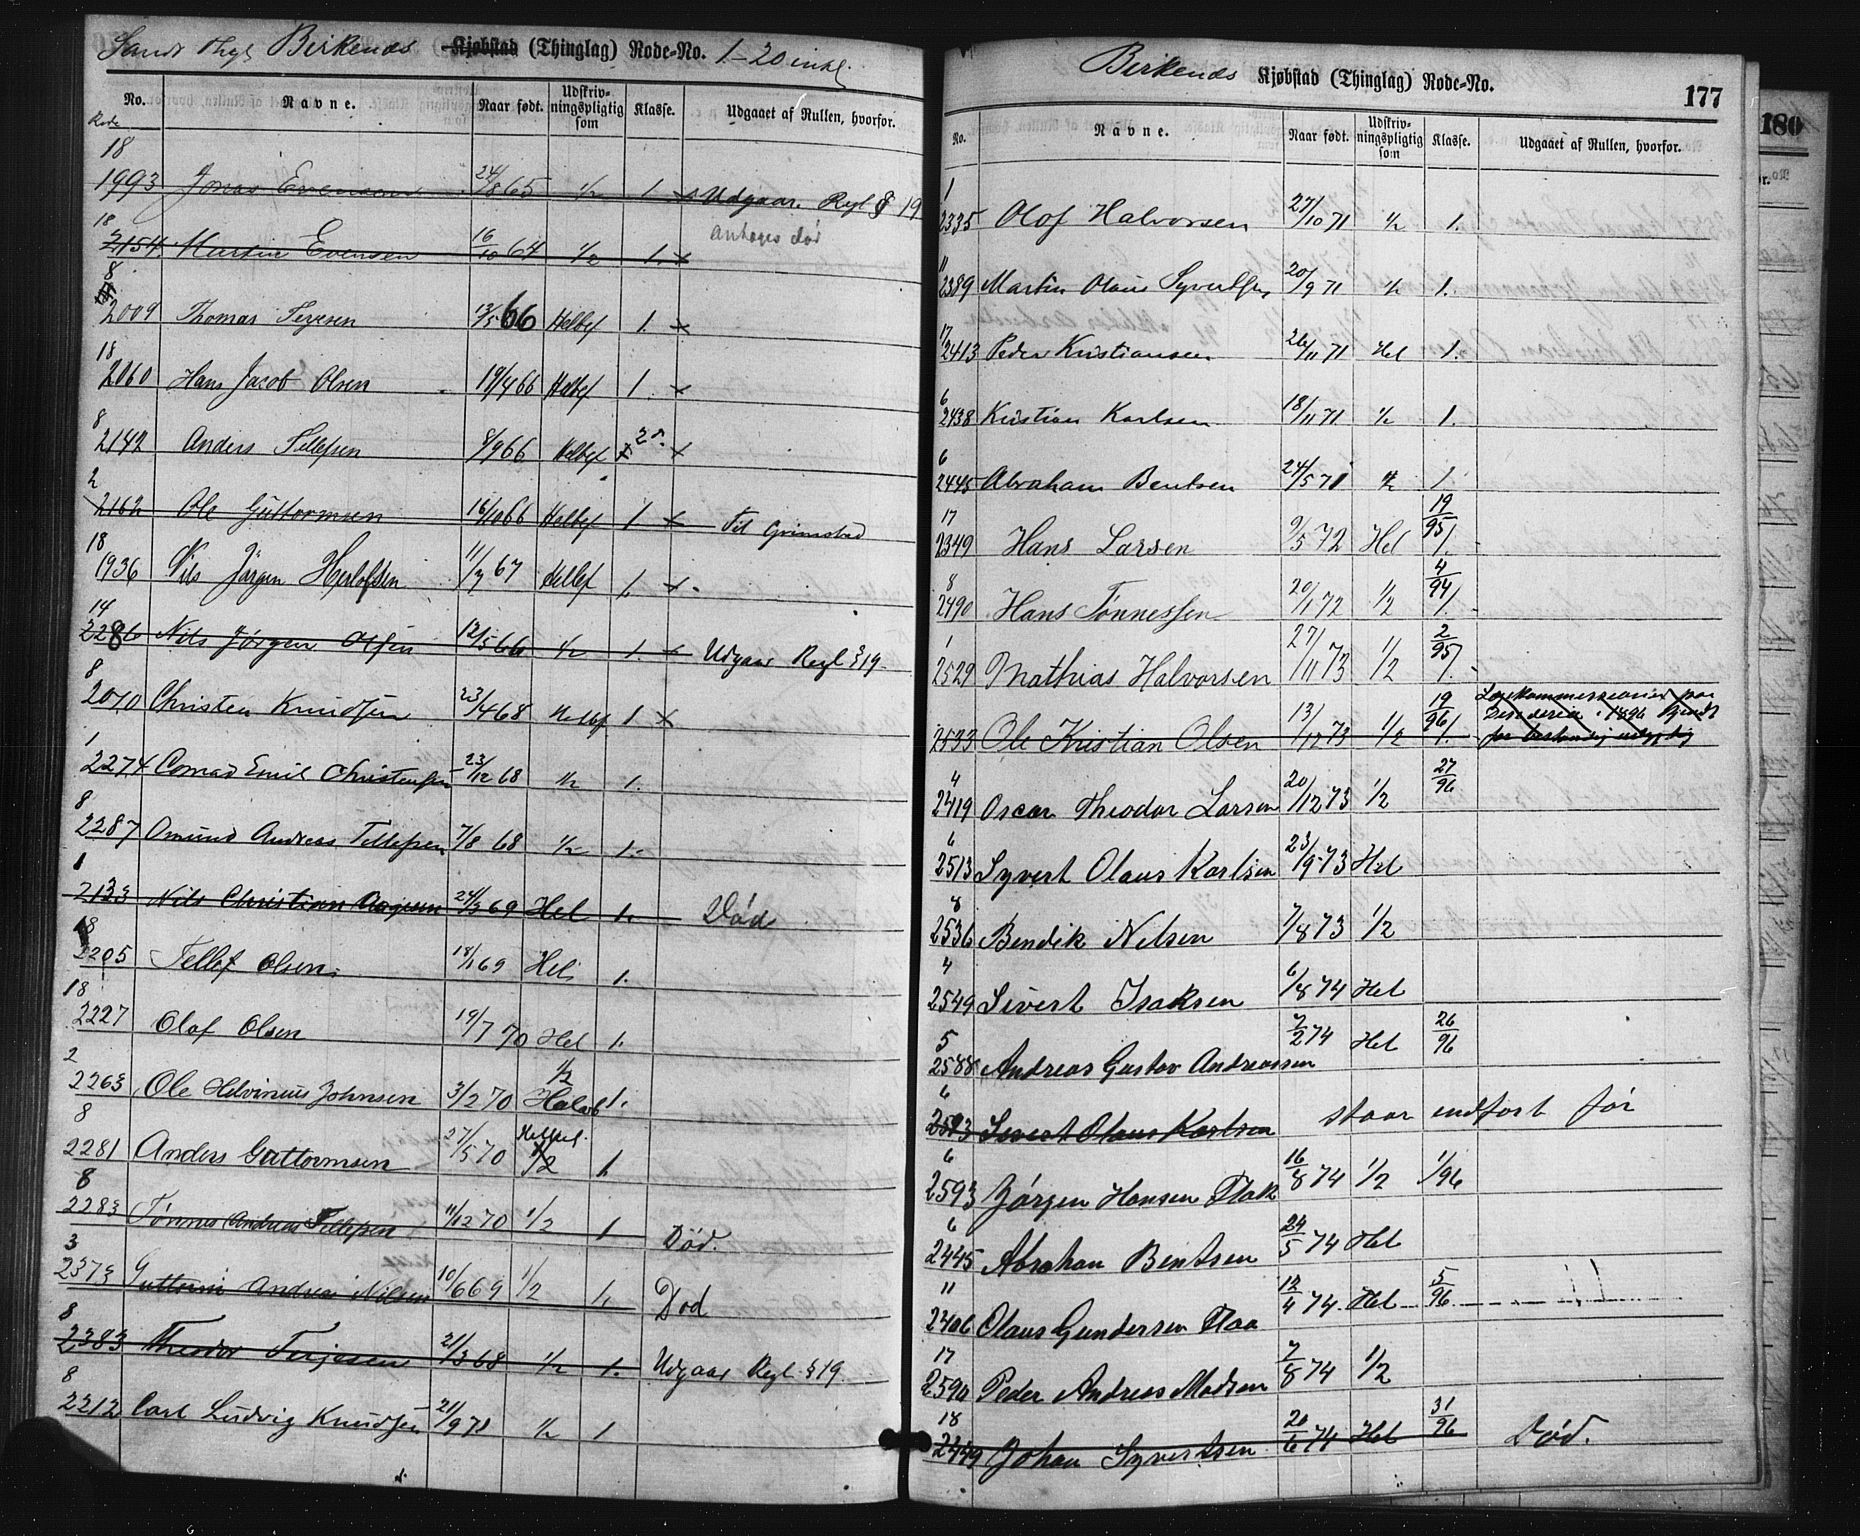 Birkenæs Kjøbstad (Thinglag) Rode-No. 1–20 inkl.
No. Navne. Naar født. Udskrivningspligtig som Klasse. Udgaaet af Rullen, hvorfor.
Rode
18
1993 Jonas Evensen 24/8 65 1/2 1. x Udgaar Regl § 19
18 Antages død
2154 Martin Evensen 16/10 64 1/2 1. x
8
2009 Thomas Terjesen 12/5 66 Helbef 1. x
18
2060 Hans Jacob Olsen 19/4 66 Helbef 1. x
8
2142 Anders Tellefsen 8/9 66 Helbef x
2
2162 Ole Guttormsen 16/10 66 Helbef 1. x Til Grimstad
18
1936 Nils Jörgen Herlofsen 11/7 67 Helbef 1. x
14
2286 Nils Jørgen Olsen 12/5 66 1/2 1. x Udgaar Regl § 19
8
2070 Christen Knudsen 23/4 68 Helbef 1 x
1
2274 Conrad Emil Christensen 23/12 68 1/2 1.
8
2287 Omund Andreas Tellefsen 7/8 68 1/2 1.
1
2133 Nils Christian Aagesen 24/3 69 Hel 1. Død
18
2205 Tellef Olsen 18/1 69 Hel 1.
18
2227 Olaf Olsen 19/7 70 Hel 1.
2 1/2
2263 Ole Helvinius Johnsen 3/2 70 Halvb 1.
8
2281 Anders Guttormsen 27/5 70 1/2 1
8
2283 Tønnes Andreas Tellefsen 11/12 70 1/2 1 Død.
3
2373 Guttorm Andreas Nilsen 10/6 69 1/2 1. Død
8
2383 Theodor Terjesen 21/3 68 1/2 1. Udgaar Regl § 19
8
2212 Carl Ludvig Knudsen 21/9 71 1/2 1
Birkenæs Kjøbstad (Thinglag) Rode-No.
177
No. Navne. Naar født. Udskrivningspligtig som Klasse. Udgaaet af Rullen, hvorfor.
1
2335 Olof Halvorsen 27/10 71 1/2 1.
11
2389 Martin Olaus Syvertsen 20/9 71 1/2 1.
17
2413 Peder Kristiansen 26/11 71 Hel 1.
6
2438 Kristian Karlsen 18/11 71 1/2 1.
6
2445 Abraham Bentsen 24/5 71 1/2 1
17 19/95
2349 Hans Larsen 9/5 72 Hel 1.
8 4/94
2490 Hans Tønnessen 20/1 72 1/2 1.
1 2/95
2529 Mathias Halvorsen 27/11 73 1/2 1.
19/96
2533 Ole Kristian Olsen 13/12 73 1/2 1.
4
2419 Oscar Theodor Larsen 20/12 73 1/2 27/96
6
2513 Syvert Olaus Karlsen 23/9 73 Hel
8
2536 Bendik Nilsen 7/8 73 1/2
4
2549 Sivert Isaksen 6/8 74 Hel
5
2588 Andreas Gustav Andreassen 7/2 74 Hel 26/96
6
2593 Sivert Olaus Karlsen staar indført før
6
2593 Jørgen Hansen Flak 16/8 74 1/2 1/96
6
2445 Abrahan Bentsen 24/5 74 Hel
11
2406 Olaus Gundersen Flaa 12/4 74 Hel 5/96
17
2590 Peder Andreas Madsen 7/8 74 1/2
18
2449 Johan Syvertsen 20/6 74 Hel 31/96 Død.
180